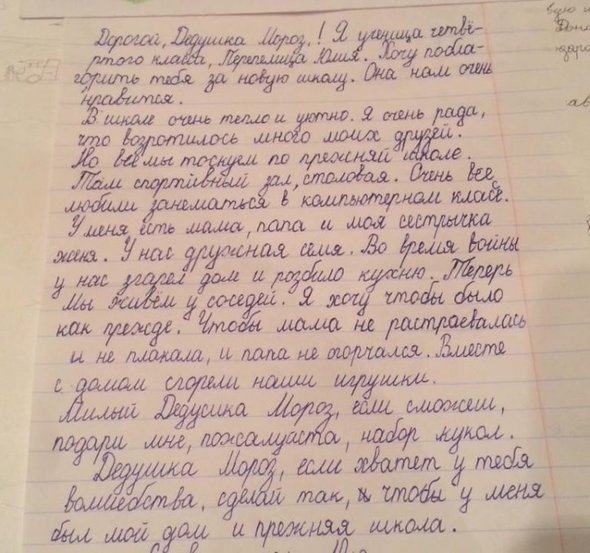 Дорогой, Дедушка Мороз,! Я ученица четвё-
ртого класса, Перепелица Юлия. Хочу побла-
горить тебя за новую школу. Она нам очень
нравится.
В школе очень тепло и уютно. Я очень рада,
что возротилось много моих друзей.
Но все мы тоскуем по прежняй школе.
Там спортивный зал, столовая. Очень все
любили занематься в компьютерном класе.
У меня есть мама, папа и моя сестрычка
женя. У нас дружная семя. Во время войны
у нас згарел дом и розбило кухню. Теперь
мы живём у соседей. Я хочу чтобы было
как прежде. Чтобы мама не растраевалась
и не плакала, и папа не горчался. Вместе
с домом сгорели наши игрушки.
Милый Дедусика Мороз, если сможеш,
подари мне, пожалуйста, набор кукол.
Дедушка Мороз, если хватет у тебя
волшебства, сделай так, чтобы у меня
был мой дом и прежняя школа.